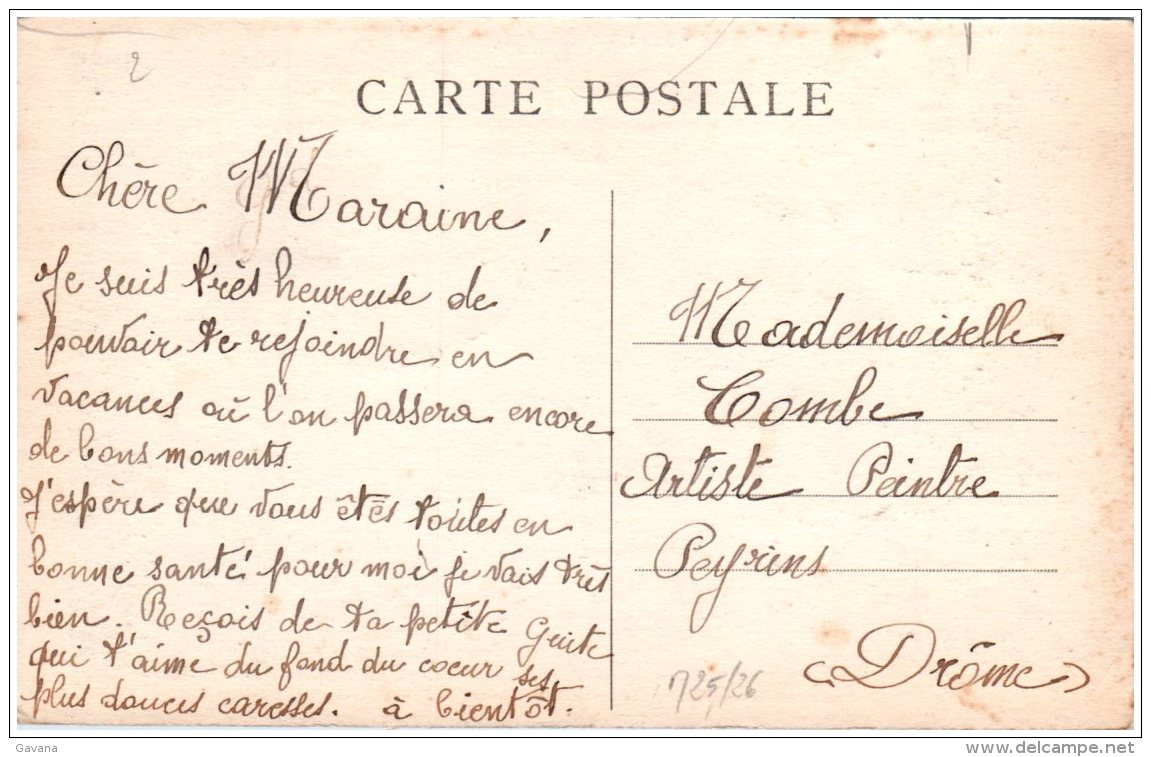 2
CARTE POSTALE
Chère Maraine,
Je suis très heureuse de
pouvoir te rejoindre en
vacances où l'on passera encore
de bons moments.
J'espère que vous êtês toutes en
bonne santé pour moi je vais très
bien. Reçois de ta petite Guite
qui t'aime du fond du coeur ses
plus douces caresses. à bientôt.
Mademoiselle
Combe
Artiste Peintre
Peyrins
(Drôme)
725/26
Gavana
www.delcampe.net